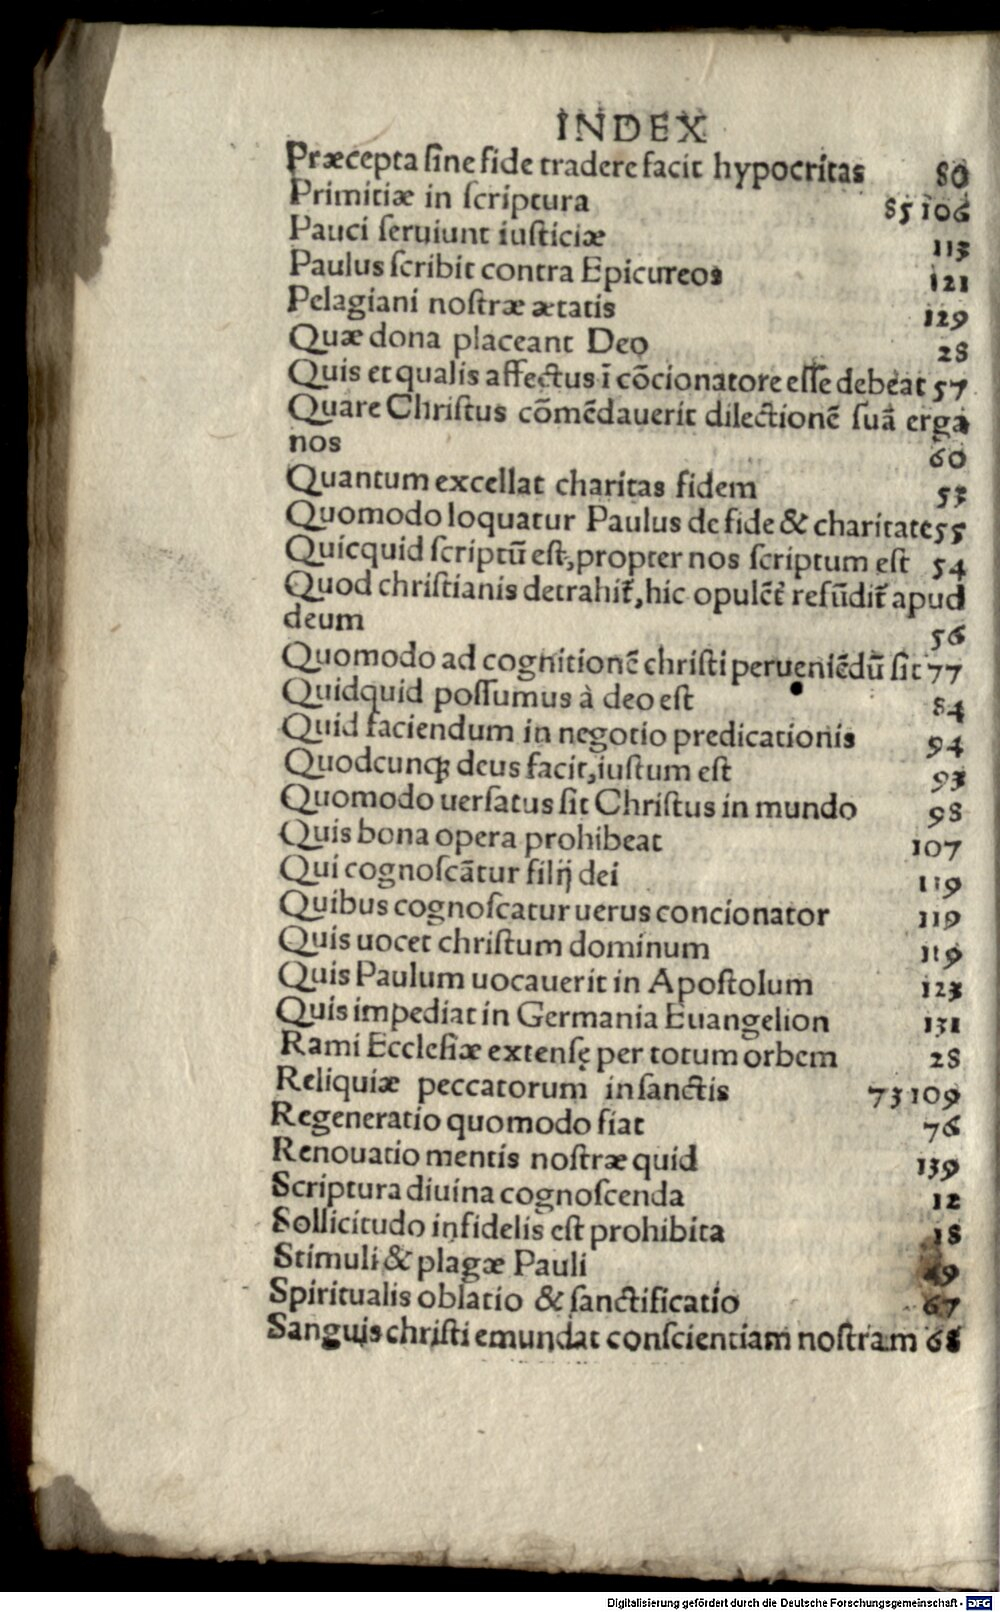 INDEX
Præcepta ſine fide tradere facit hypocritas 80
Primitiæ in ſcriptura 85 106
Pauci ſeruiunt iuſticiæ 113
Paulus ſcribit contra Epicureos 121
Pelagiani noſtræ ætatis 129
Quæ dona placeant Deo 28
Quis et qualis affectus ī cōcionatore eſſe debeat 57
Quare Chriſtus cōmēdauerit dilectionē ſuā erga
nos 60
Quantum excellat charitas fidem 53
Quomodo loquatur Paulus de fide & charitate 55
Quicquid ſcriptū eſt, propter nos ſcriptum eſt 54
Quod chriſtianis detrahit̃, hic opulēt̃ refūdit̃ apud
deum 56
Quomodo ad cognitionē chriſti perueniēdū ſit 77
Quidquid poſſumus à deo eſt 84
Quid faciendum in negotio predicationis 94
Quodcunqꝫ deus facit, iuſtum eſt 93
Quomodo uerſatus ſit Chriſtus in mundo 98
Quis bona opera prohibeat 107
Qui cognoſcātur filij dei 119
Quibus cognoſcatur uerus concionator 119
Quis uocet chriſtum dominum 119
Quis Paulum uocauerit in Apoſtolum 123
Quis impediat in Germania Euangelion 131
Rami Eccleſiæ extenſę per totum orbem 28
Reliquiæ peccatorum in ſanctis 73 109
Regeneratio quomodo fiat 76
Renouatio mentis noſtræ quid 139
Scriptura diuina cognoſcenda 12
Sollicitudo infidelis eſt prohibita 18
Stimuli & plagæ Pauli 49
Spiritualis oblatio & ſanctificatio 67
Sanguis chriſti emundat conſcientiam noſtram 68
Digitalisierung gefördert durch die Deutsche Forschungsgemeinschaft - DFG